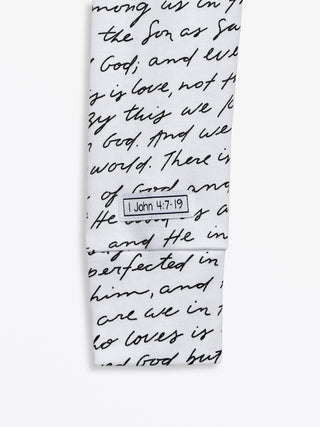 among us in
the Son as Sa
God; and eve
is love, not
By this we
God. And we
world. There is
of God and
1 John 4:7-19
He a
and He in
perfected in
him, and
are we in
ho loves is
God but